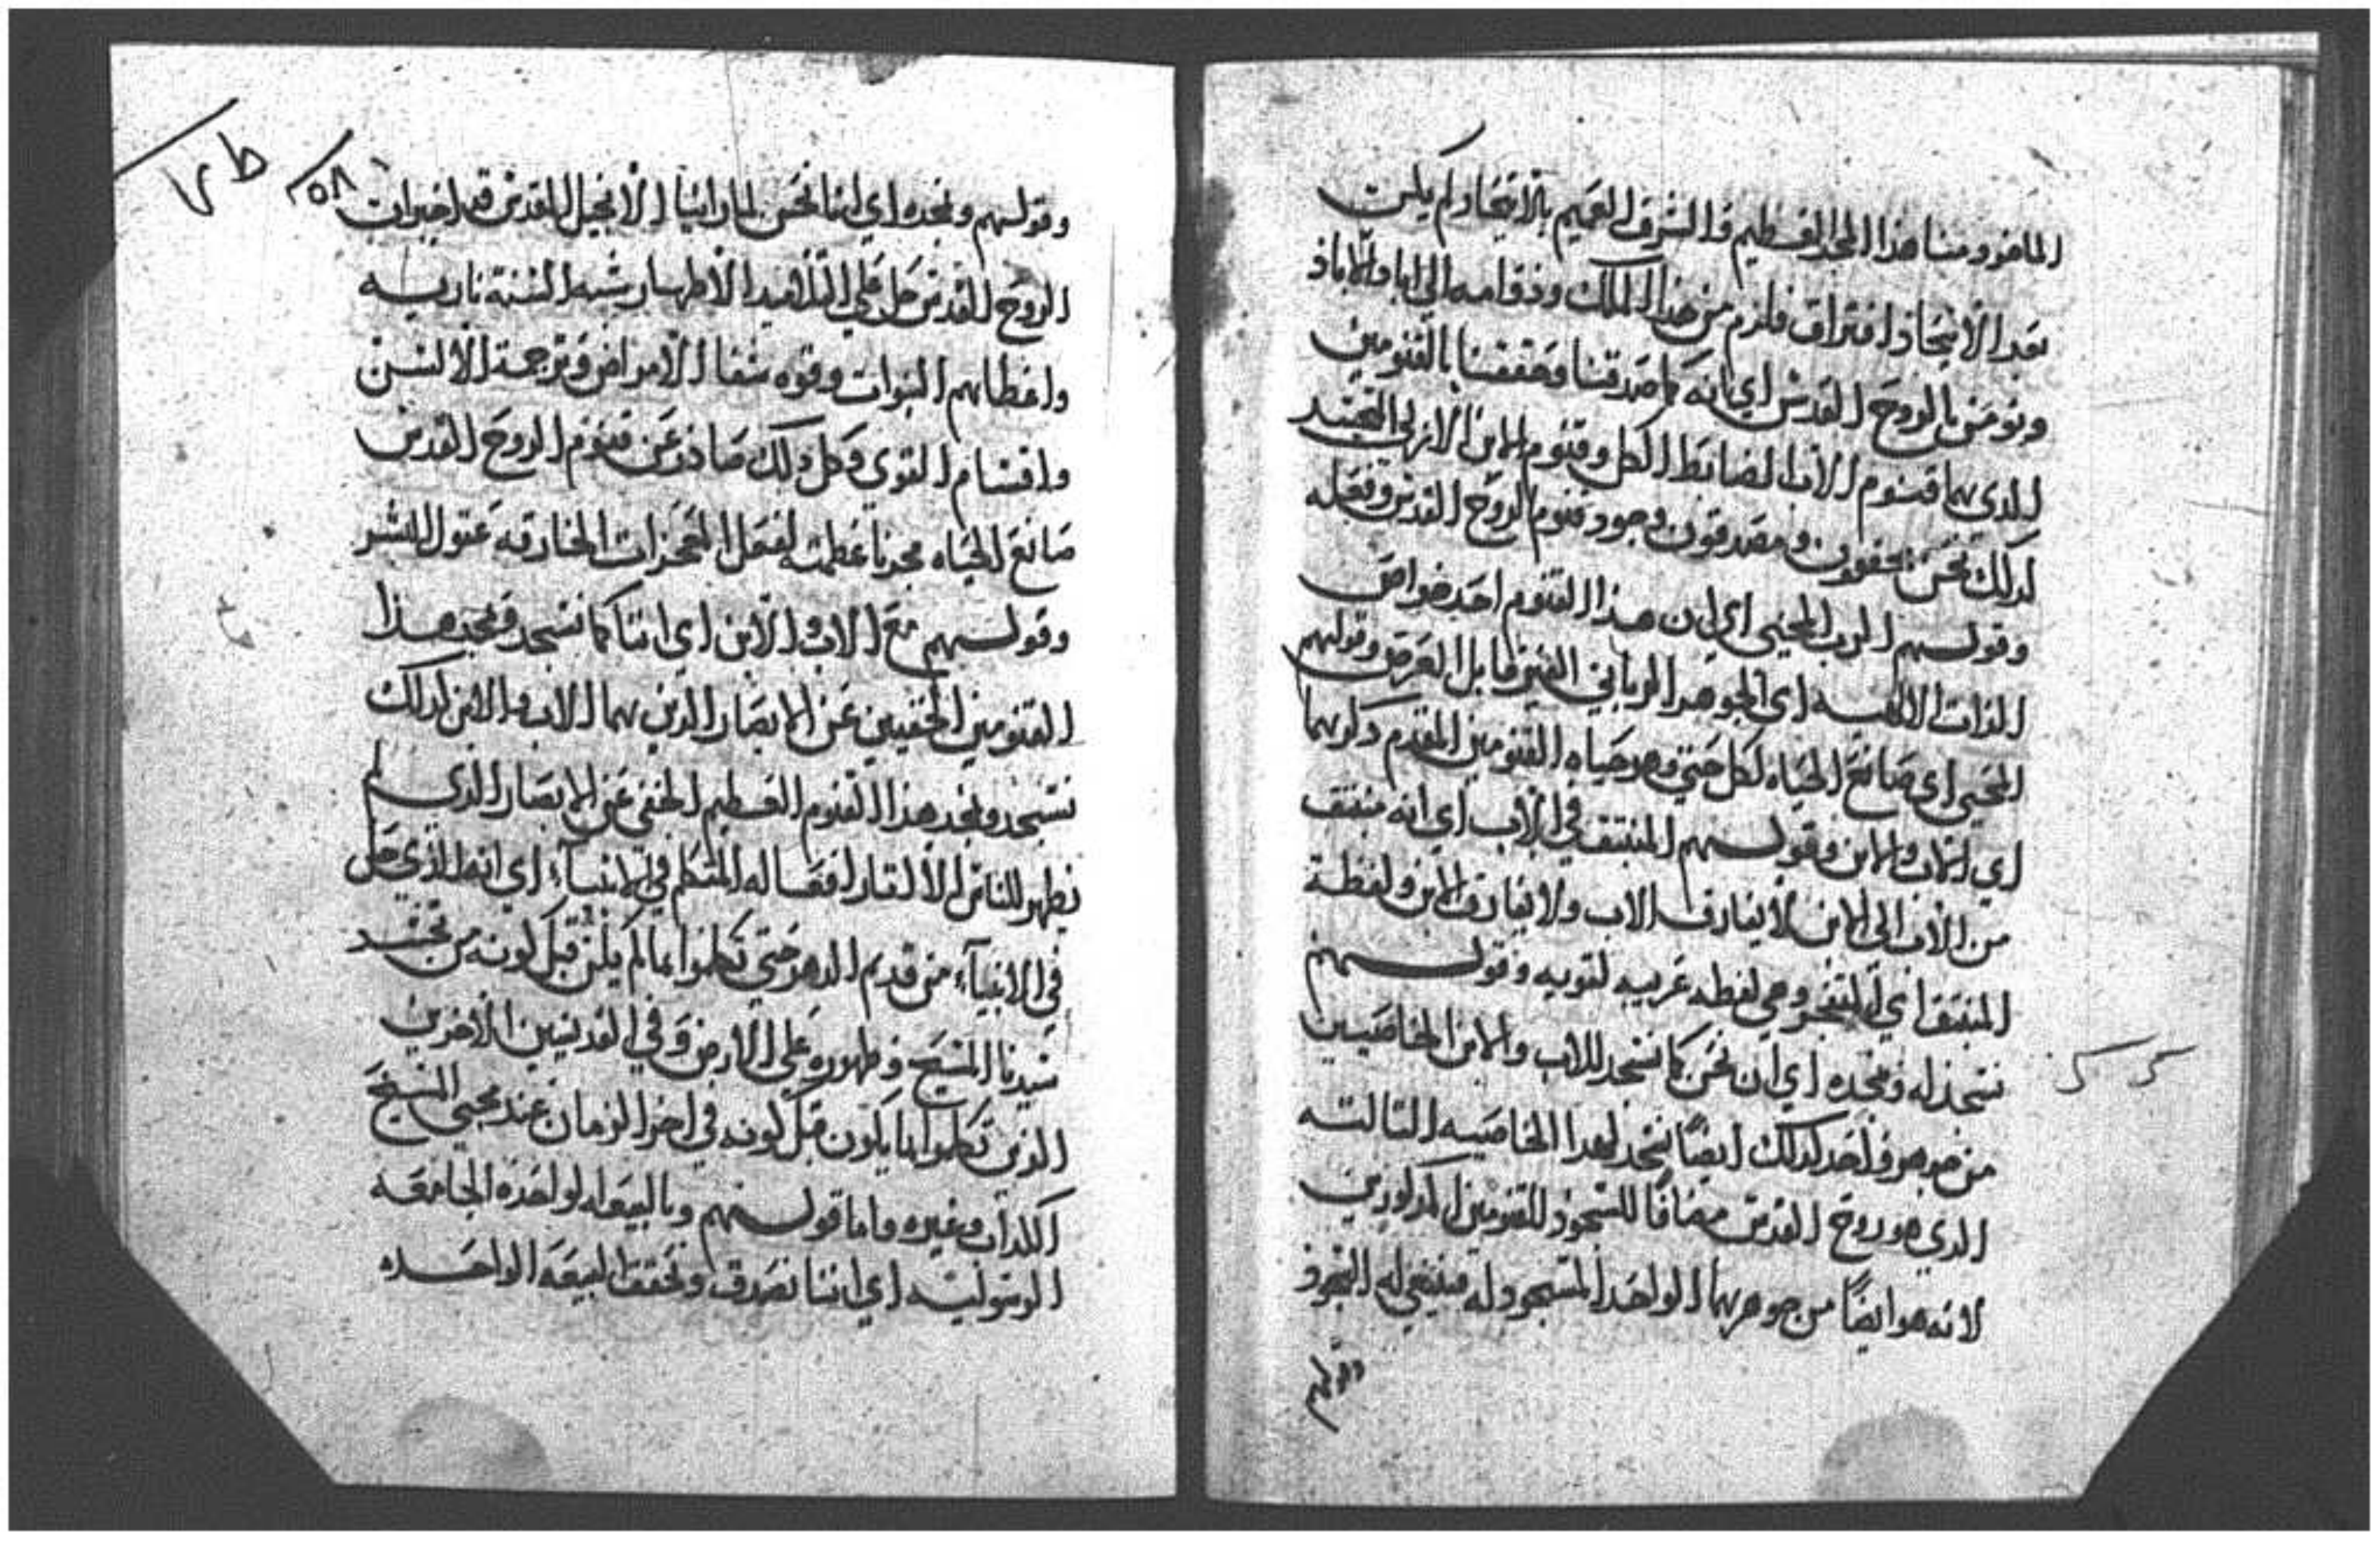 الماخوذ منا هذا المجد العظيم والشرف العميم بالاتحاد ولم يكن
بعد الاتحاد افتراق فلزم من هذا الملك ودوامه الي اباد الاباد
ونومن بالروح القدس اي انه كما صدقنا وحققنا بالقنومين
الذي هما قنوم الاب الضابط الكل وقنوم الابن الازلي المتجسد
لدلك نحن محققون ومصدقون وجود قنوم الروح القدس وفعله
وقولهم الرب المحيي اي ان هذا القنوم احد خواص
الذات الالهيه اي الجوهر الرباني الغير قابل العرض وقولهم
المحيي اي صانع الحياه لكل حي وهو حياه القنومين المقدم دكرهما
اي الاب والابن وقولهم المنبثق في الاب اي انه منبثق
من الاب الي الابن لا يفارق الاب ولا يفارق الابن ولفظة
المنبثق اي المتفجر وهي لفظه عربيه لغويه وقولهم
نسجد له ونمجده اي ان نحن كما نسجد للاب والابن الخاصيين
من جوهر واحد كدلك ايضًا نسجد لهدا الخاصيه التالته
الدي هو روح القدس مضافًا للسجود للقنومين المدكورين
لانه هو ايضًا من جوهرهما الواحد المسجود له فينبغي له السجود
وقولهم
٢٥٨
وقولهم ونمجده اي اننا نحن لما راينا الانجيل المقدس قد اخبر ان
الروح القدس حل علي التلاميد الاطهار شبه السنة ناريه
واعطاهم النبوات وقوه شفا الامراض وترجمة الالسن
واقسام القوي وكل دلك صادر عن قنوم الروح القدس
صانع الحياه مجدنا عظمته لفعل المعجزات الخارقه عقول البشر
وقولهم مع الاب والابن اي اننا كما نسجد ونمجد هذا
القنومين الخفيين عن الابصار الدين هما الاب والابن كدلك
نسجد ونمجد هذا القنوم العظيم الخفي عن الابصار الذي لم
يظهر للناس الا اتار افعاله المتكلم في الانبيآء اي انه الذي حل
في الانبيآء من قديم الدهر حتي تكلموا بما لم يكن قبل كونه من تجسد
سيدنا المسيح وظهوره علي الارض وفي القديسين الاخرين
الذين تكلموا بما يكون قبل كونه في اخر الزمان عند مجي المسيح
الكداب وغيره واما قولهم وبالبيعه الواحده الجامعه
الرسوليه اي اننا نصدق ونحقق البيعه الواحده